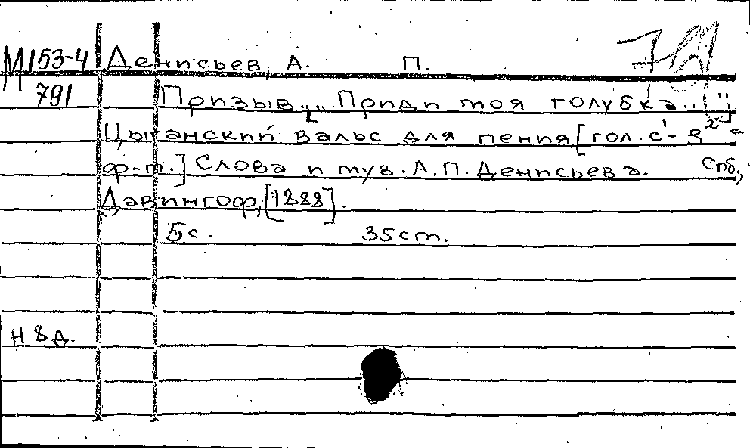 М153-4 Денисьев, А. П.
791 Призыв. „Приди моя голубка..."]
Цыганский вальс для пения [гол. с¹-g²-
ф-п.] Слова и муз. А.П. Денисьева. Спб.,
Давингоф, [1888].
5с. 35cm.
Н 8 д.